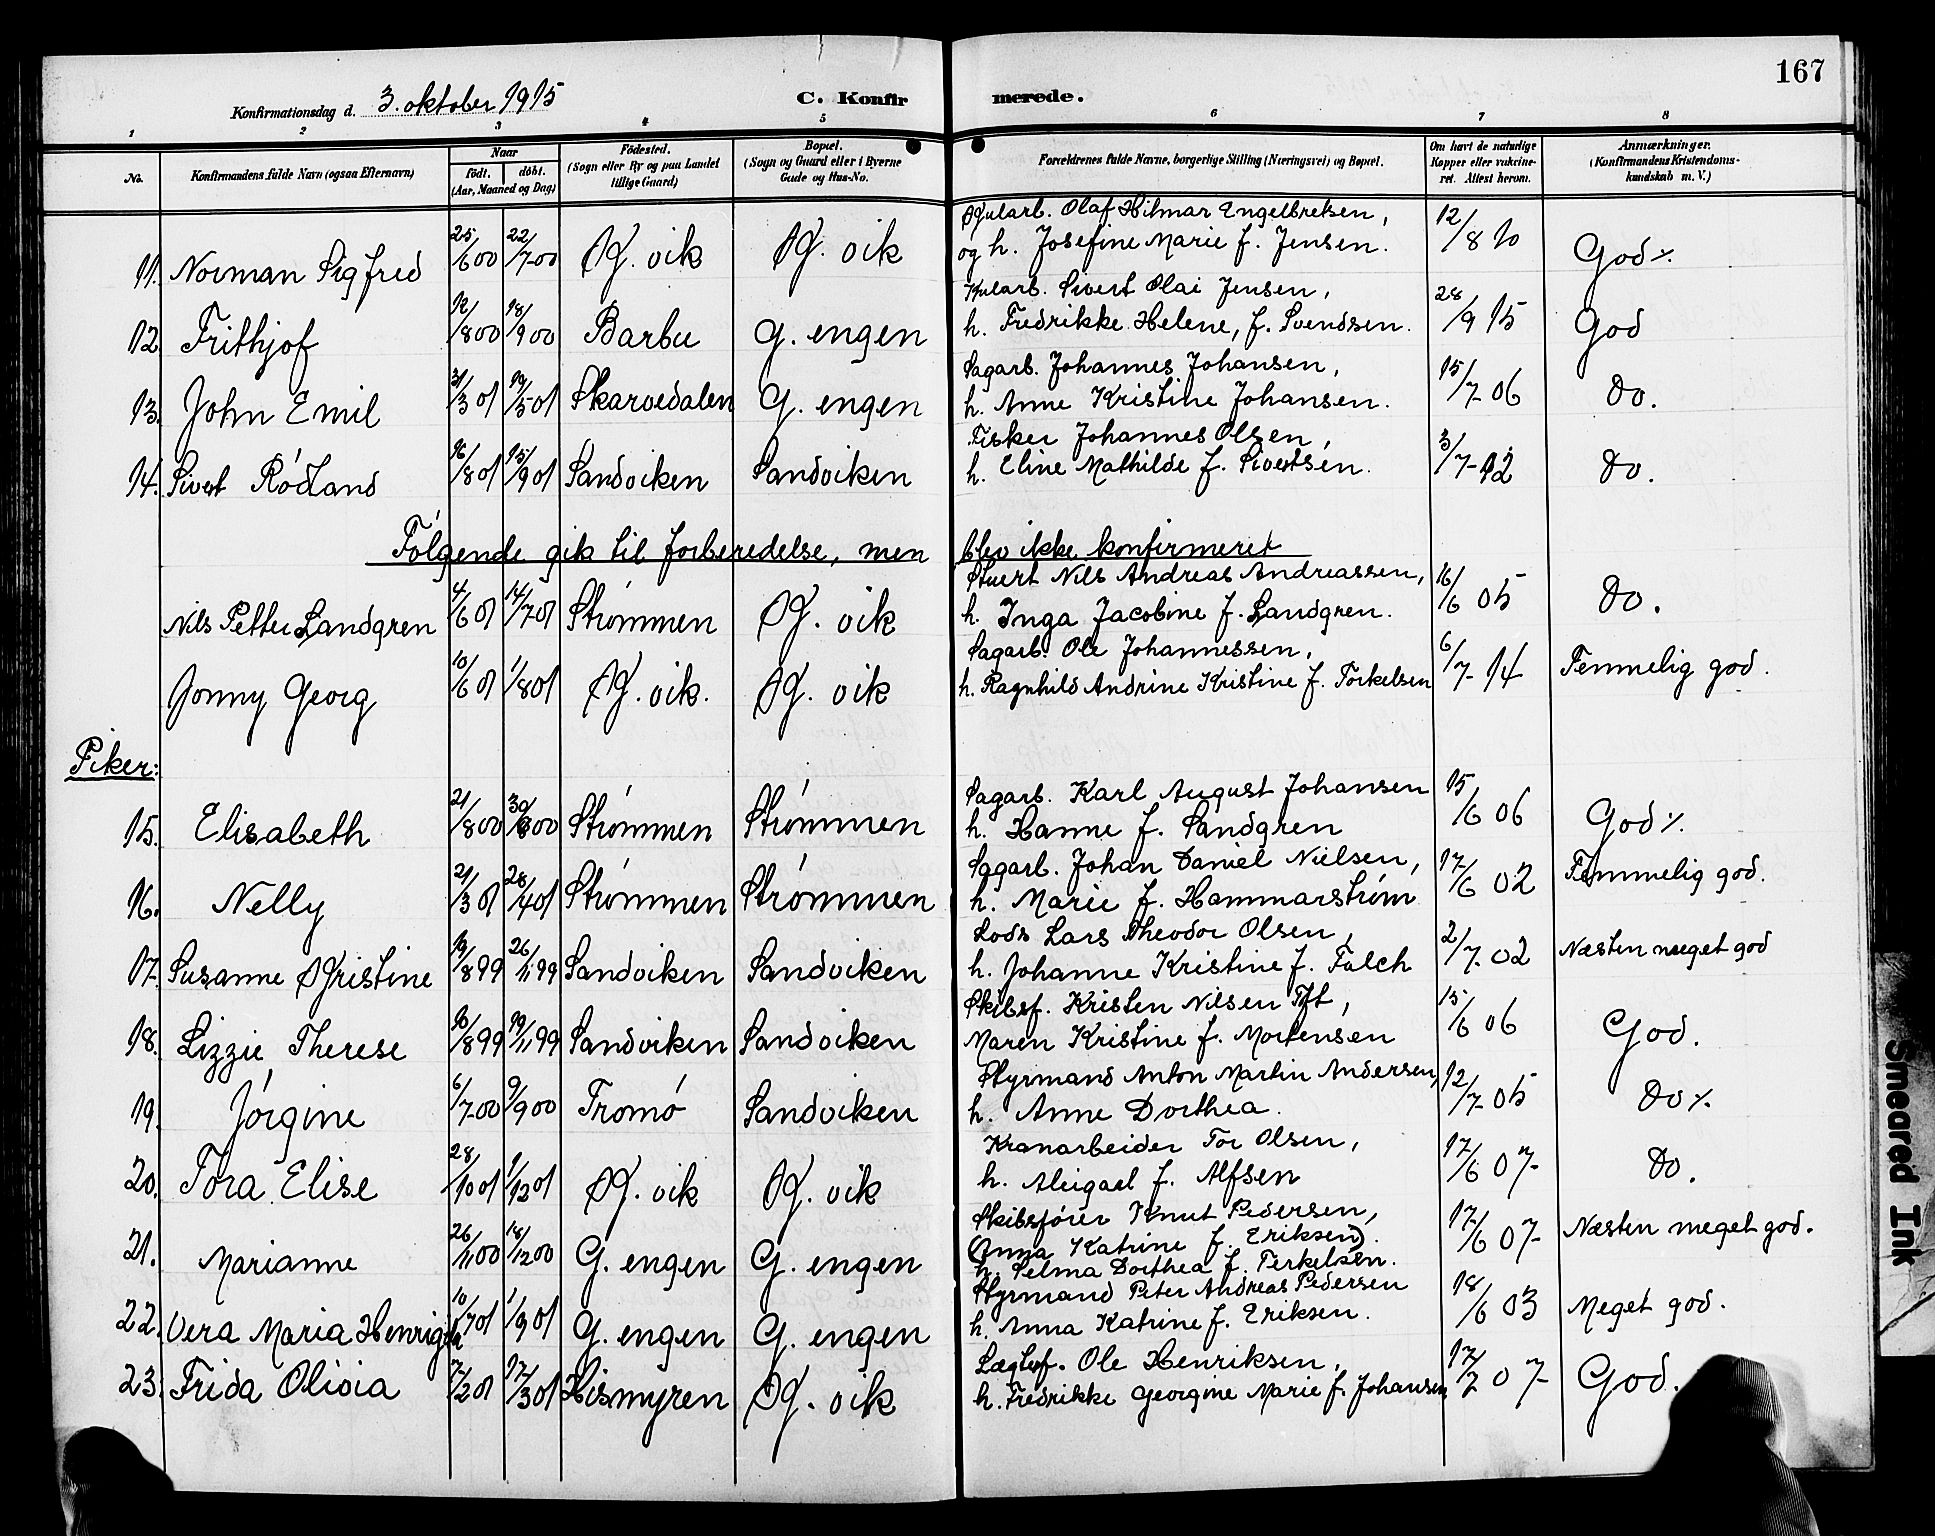 167
Konfirmationsdag d. 3. oktober 1915 C. Konfirmerede.
1 2 3 4 5 6 7 8
No. Konfirmandens fulde Navn (ogsaa Efternavn) Naar født. døbt. (Aar, Maaned og Dag) Fødested. (Sogn eller By og paa Landet tillige Gaard) Bopæl. (Sogn og Gaard eller i Byerne Gade og Hus-No. Forældrenes fulde Navne, borgerlige Stilling (Næringsvei) og Bopæl. Om havt de naturlige Kopper eller vakcineret. Attest herom. Anmærkninger. (Konfirmandens Kristendomskundskab m. V.)
Olaf Hilmar Engelbretsen,
11. Norman Sigfred 25/6 00 22/7 00 vik vik og h. Josefine Marie f. Jensen. 12/8 10 God %.
Kularb. Sivert Olai Jensen,
12. Frithjof 12/8 00 18/9 00 Barbu G. engen h. Fredrikke Helene, f. Svendsen. 28/9 15 God
Sagarb. Johannes Johansen,
13. John Emil 31/3 01 19/5 01 Skarvedalen G. engen h. Anne Kristine Johansen. 15/7 06 Do.
Fisker Johannes Olsen,
14. Sivert Rødland 16/8 01 15/9 01 Sandviken Sandviken h. Eline Mathilde f. Sivertsen. 3/7-12 Do.
Følgende gik til forberedelse, men blev ikke konfirmeret
Stuert Nils Andreas Andreassen,
Nils Petter Landgren 4/6 01 14/7 01 Strømmen vik h. Inga Jacobine f. Landgren. 16/6 05 Do.
Sagarb. Ole Johannessen,
Jonny Georg 10/6 01 1/8 01 vik. vik h. Ragnhild Andrine Kristine f. Torkelsen 6/7-14 Temmelig god.
Piker:
Sagarb. Karl August Johansen
15. Elisabeth 21/8 00 Strømmen Strømmen h. Hanne f. Sandgren 15/6 06 God %.
Sagarb. Johan Daniel Nielsen,
16. Nelly 21/3 01 28/4 01 Strømmen Strømmen h. Marie f. Hammarstrøm 17/6 02 Temmelig god.
Lods Lars Theodor Olsen,
17. Susanne Kristine 19/8 99 26/11 99 Sandviken Sandviken h. Johanne Kristine f. Falch 2/7. 02 Næsten meget god
Skibsf. Kristen Nilsen Toft,
18. Lizzie Therese 10/8 99 19/11 99 Sandviken Sandviken Maren Kristine f. Mortensen 15/6 06 God.
Styrmand Anton Martin Andersen,
19. Jørgine 6/7 00 9/9 00 Tromø Sandviken h. Anne Dorthea. 12/7-05 Do %.
Kranarbeider Tor Olsen,
20. Tora Elise 28/10 01 1/12 01 vik vik h. Abigael f. Alfsen 17/6 07 Do.
Skibsfører Knut Pedersen,
21. Marianne 26/11 00 18/12 00 G. engen G. engen (Anna Katrine f. Eriksen). 17/6 07 Næsten meget god.
h. Selma Dorthea f. Terkelsen.
Styrmand Peter Andreas Pedersen
22. Vera Maria 10/7 01 1/9 01 G. engen G. engen h. Anna Katrine f. Eriksen. 18/6 03 Meget god.
Ole Henriksen,
23. Frida Olivia 17/2 01 17/3 01 Hismyren vik h. Fredrikke Georgine Marie f. Johansen 17/7 07 God.
Smeared Ink